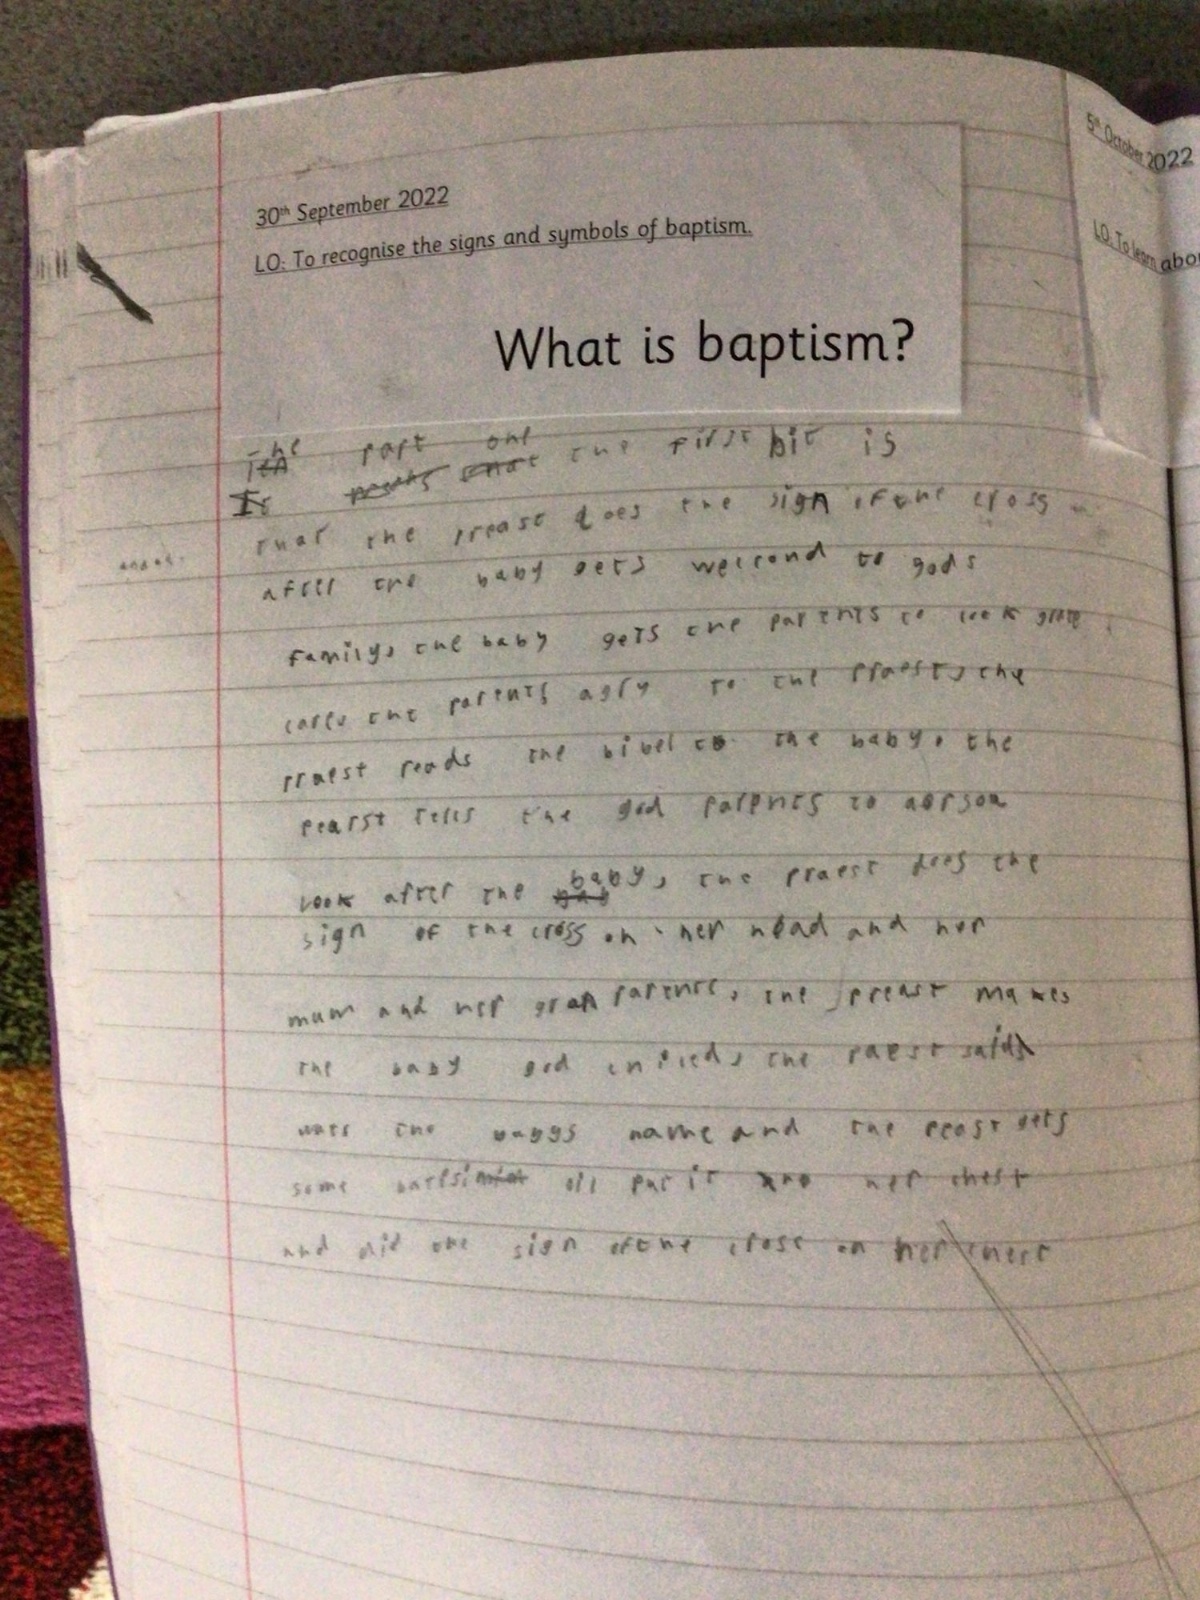 30th September 2022
LO: To recognise the signs and symbols of baptism.
What is baptism?
5th October 2022
LO: To learn abo
The part one the first bit is
that the preast does the sign ofthe cross
after the baby gets to gods
family, the baby gets the parents to look
the parents to the praest, the
praest reads the bibel to the baby, the
pearst tells the god parents to
look after the baby, the praest does the
sign of the cross on her head and her
mum and her gran parents, the preast makes
the baby god the paest said
wats the babys name and the peast gets
some oil put it her chest
and did the sign ofthe cross on her chest